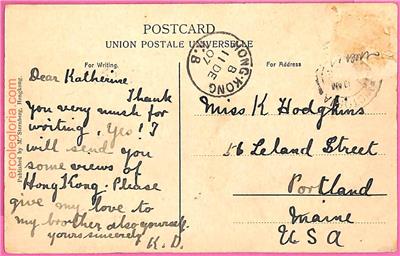 POSTCARD
UNION POSTALE UNIVERSELLE
For Writing.
For Address
HONG-KONG
B
11 DE
07
V.B.
Dear Katherine
Thank
you very much for
writing, Yes! I
will send you
some views of
Hong Kong. Please
give my love to
my brother also yourself.
yours sincerely
K.D.
Miss K Hodgkins
56 Leland Street
Portland
Maine
U S A
Published by M. Sternberg, Hongkong.
ercolegloria.com